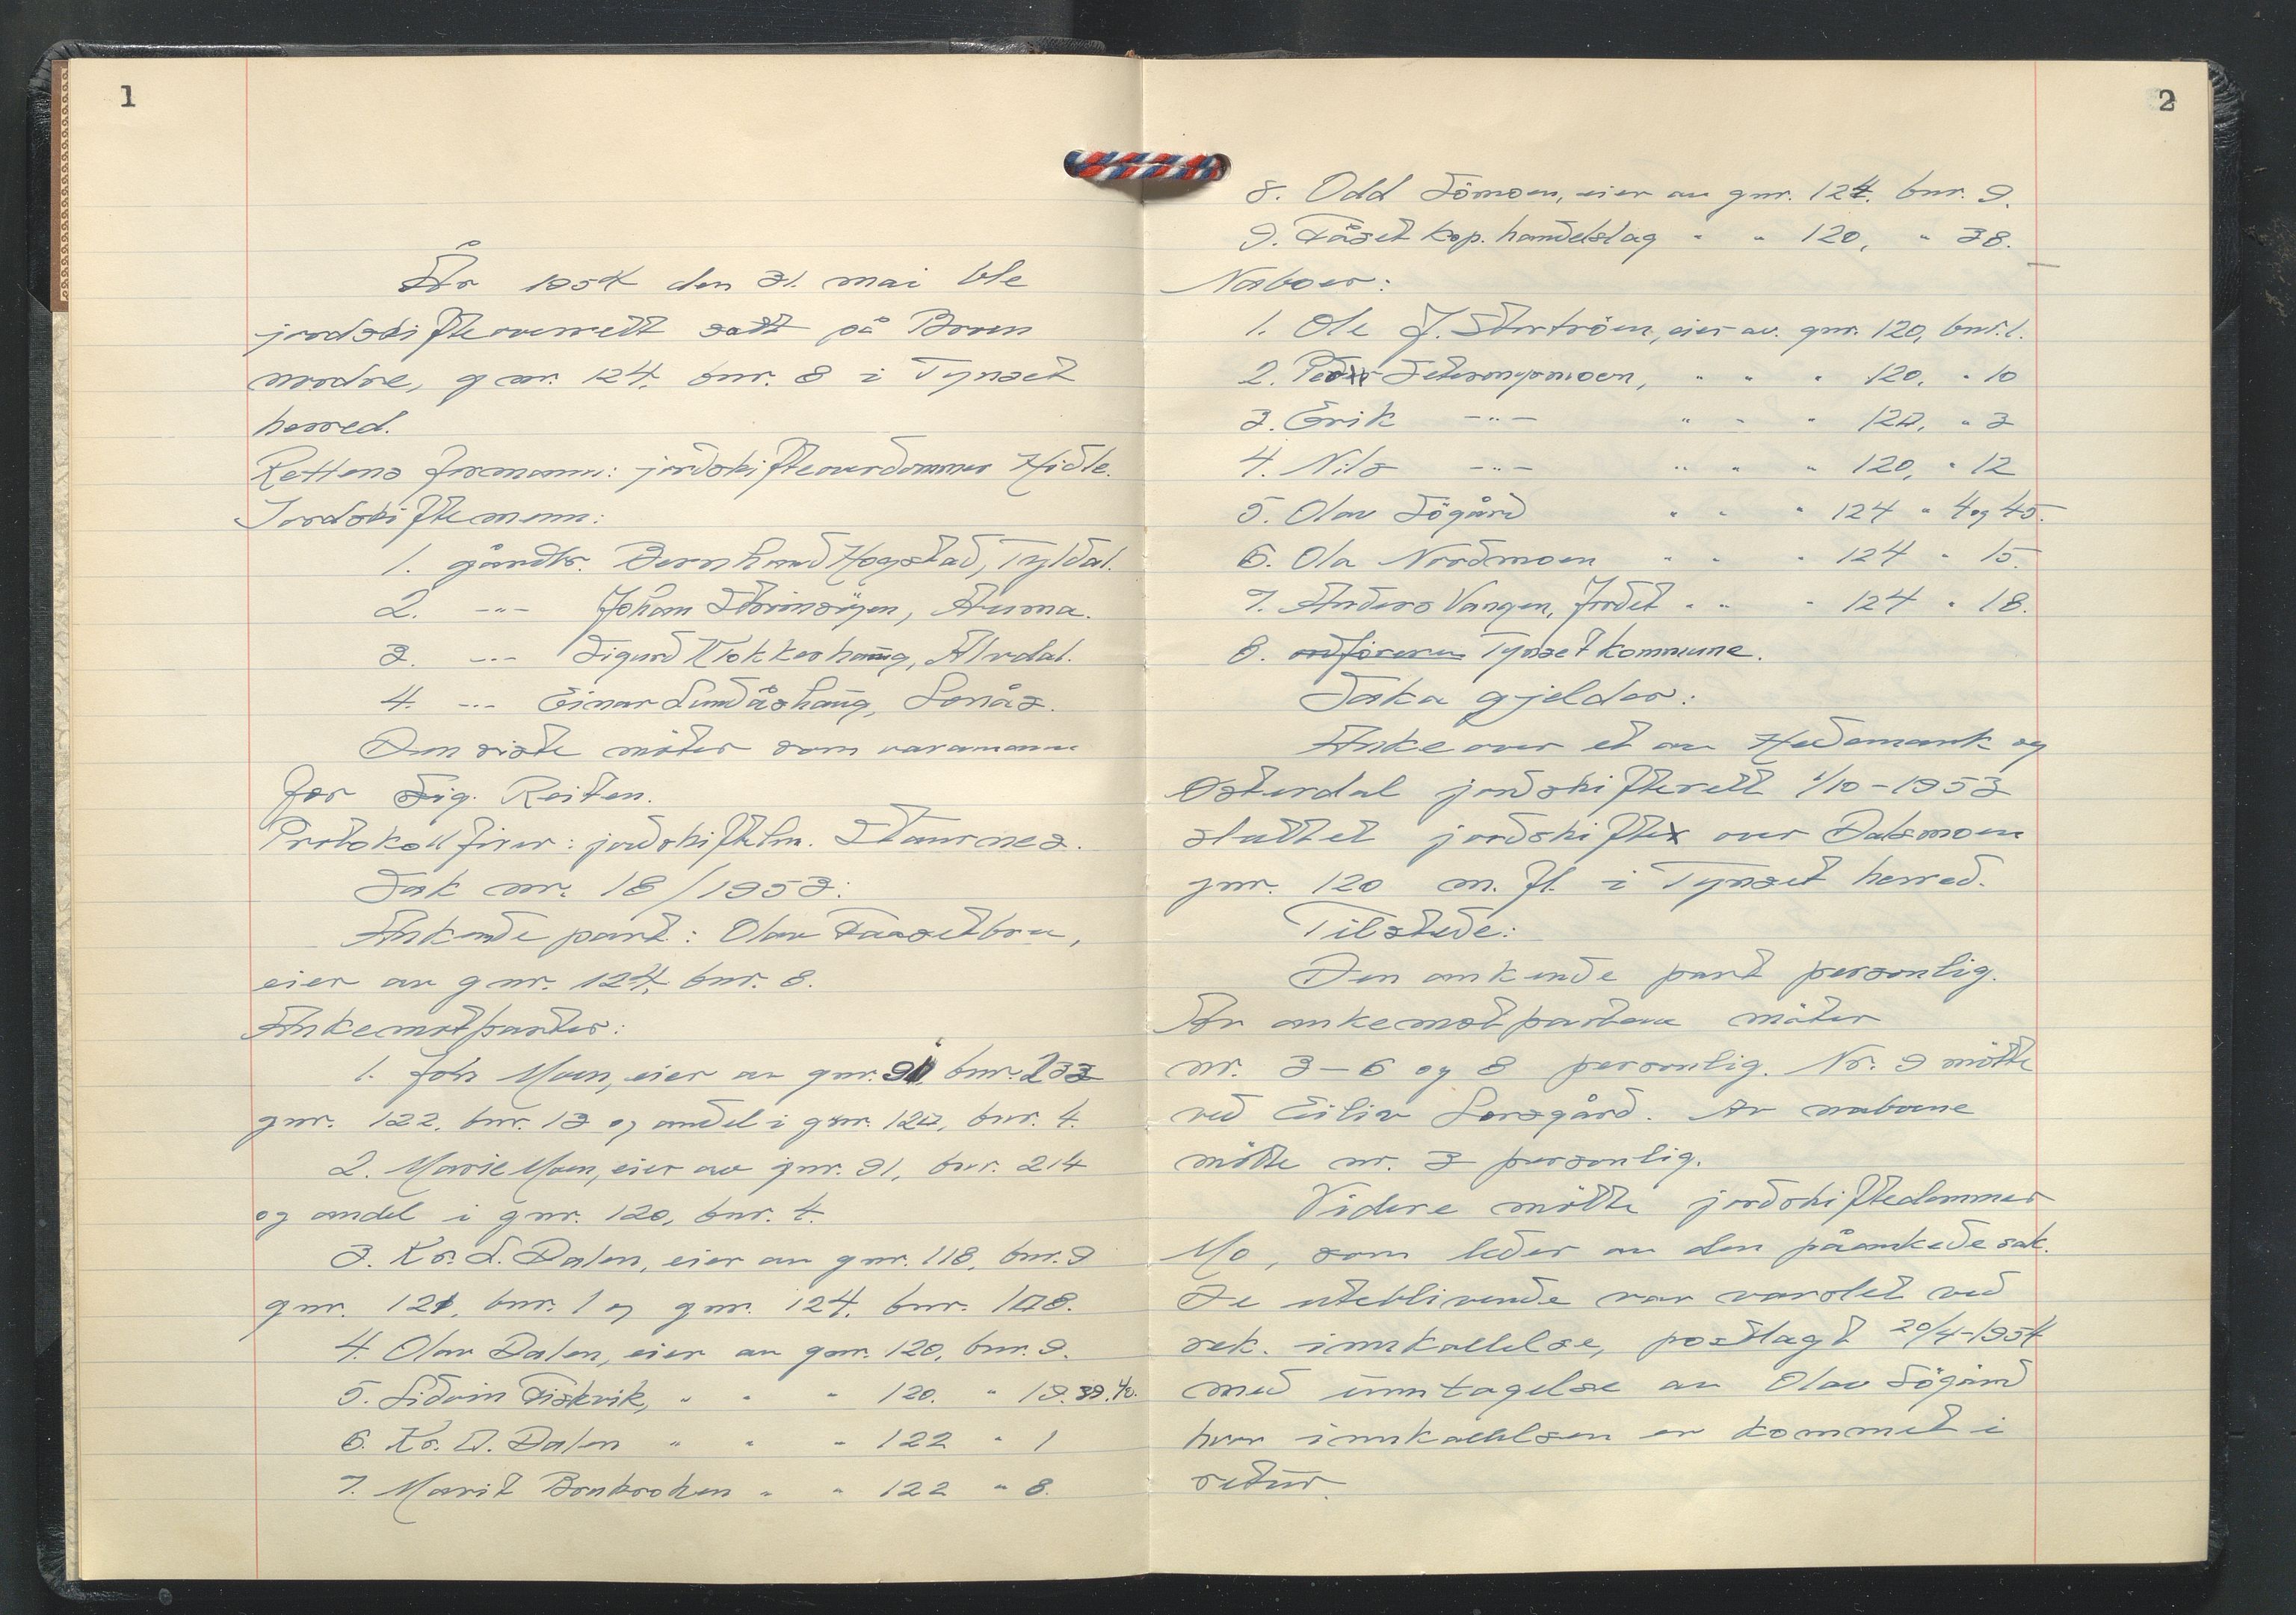 1
År 1954 den 31. mai ble
jordskifteoverrett satt på Bruen
nordre, gnr. 124, bnr. 8 i Tynset
herred.
Rettens formann: jordskifteoverdommer Hidle.
Jordskiftemenn:
1. gårdbr. Bernhard Hogstad, Tyldal.
2. -"- Johan Storinsöyen, Auma.
3. -"- Sigurd Klokkerhaug, Alvdal.
4. -"- Einar Lundåshaug, Sonås.
Den siste möter som varamann
for Sig. Reiten.
Protokollfører: jordskiftektn. Staurnes.
Sak nr. 18/1953:
Ankende part: Olav Faasetbru,
eier av gnr. 124, bnr. 8.
Ankemotparter:
1. Joh. Moen, eier av gnr. 91, bnr. 233
gnr. 122, bnr. 13 og andel i gnr. 120, bnr. 4.
2. Marie Moen, eier av gnr. 91, bnr. 214
og andel i gnr. 120, bnr. 4.
3. Kr. L. Dalen, eier av gnr. 118, bnr. 9
gnr. 121, bnr. 1 og gnr. 124, bnr. 108.
4. Olav Dalen, eier av gnr. 120, bnr. 9.
5. Sidvin Fiskvik, " " " 120. " 19.39.40.
6. Kr. O. Dalen " " " 122 " 1
7. Marit Brukroken " " 122 " 8.
2
8. Odd Sömoen, eier av gnr. 124. bnr. 9.
9. Fåset kop. handelslag " " 120, " 38.
Naboer:
1. Ole J. Storström, eier av. gnr. 120, bnr. 1.
2. Peder Seternysmoen, " " " 120, " 10
3. Erik -"- " " " 120, " 3
4. Nils -"- " " " 120, " 12
5. Olav Sögård " " " 124 " 4 og 45.
6. Ola Nordmoen " " " 124 " 15.
7. Anders Vangen, Jordet " " " 124 " 18.
8. ordföreren Tynset kommune.
Saka gjelder:
Anke over et av Hedemark og
Österdal jordskifterett 1/10-1953
sluttet jordskifte over Dalsmoen
gnr. 120 m.fl. i Tynset herred.
Tilstede:
Den ankende part personlig.
Av ankemotpartene möter
nr. 3-6 og 8 personlig. Nr. 9 mötte
ved Eiliv Lorsgård. Av naboene
mötte nr. 3 personlig.
Videre mötte jordskiftedommer
Mo, som leder av den påankede sak.
De uteblivende var varslet ved
rek. innkallelse, postlagt 20/4-1954
med unntagelse av Olav Sögård
hvor innkallelsen er kommet i
retur.